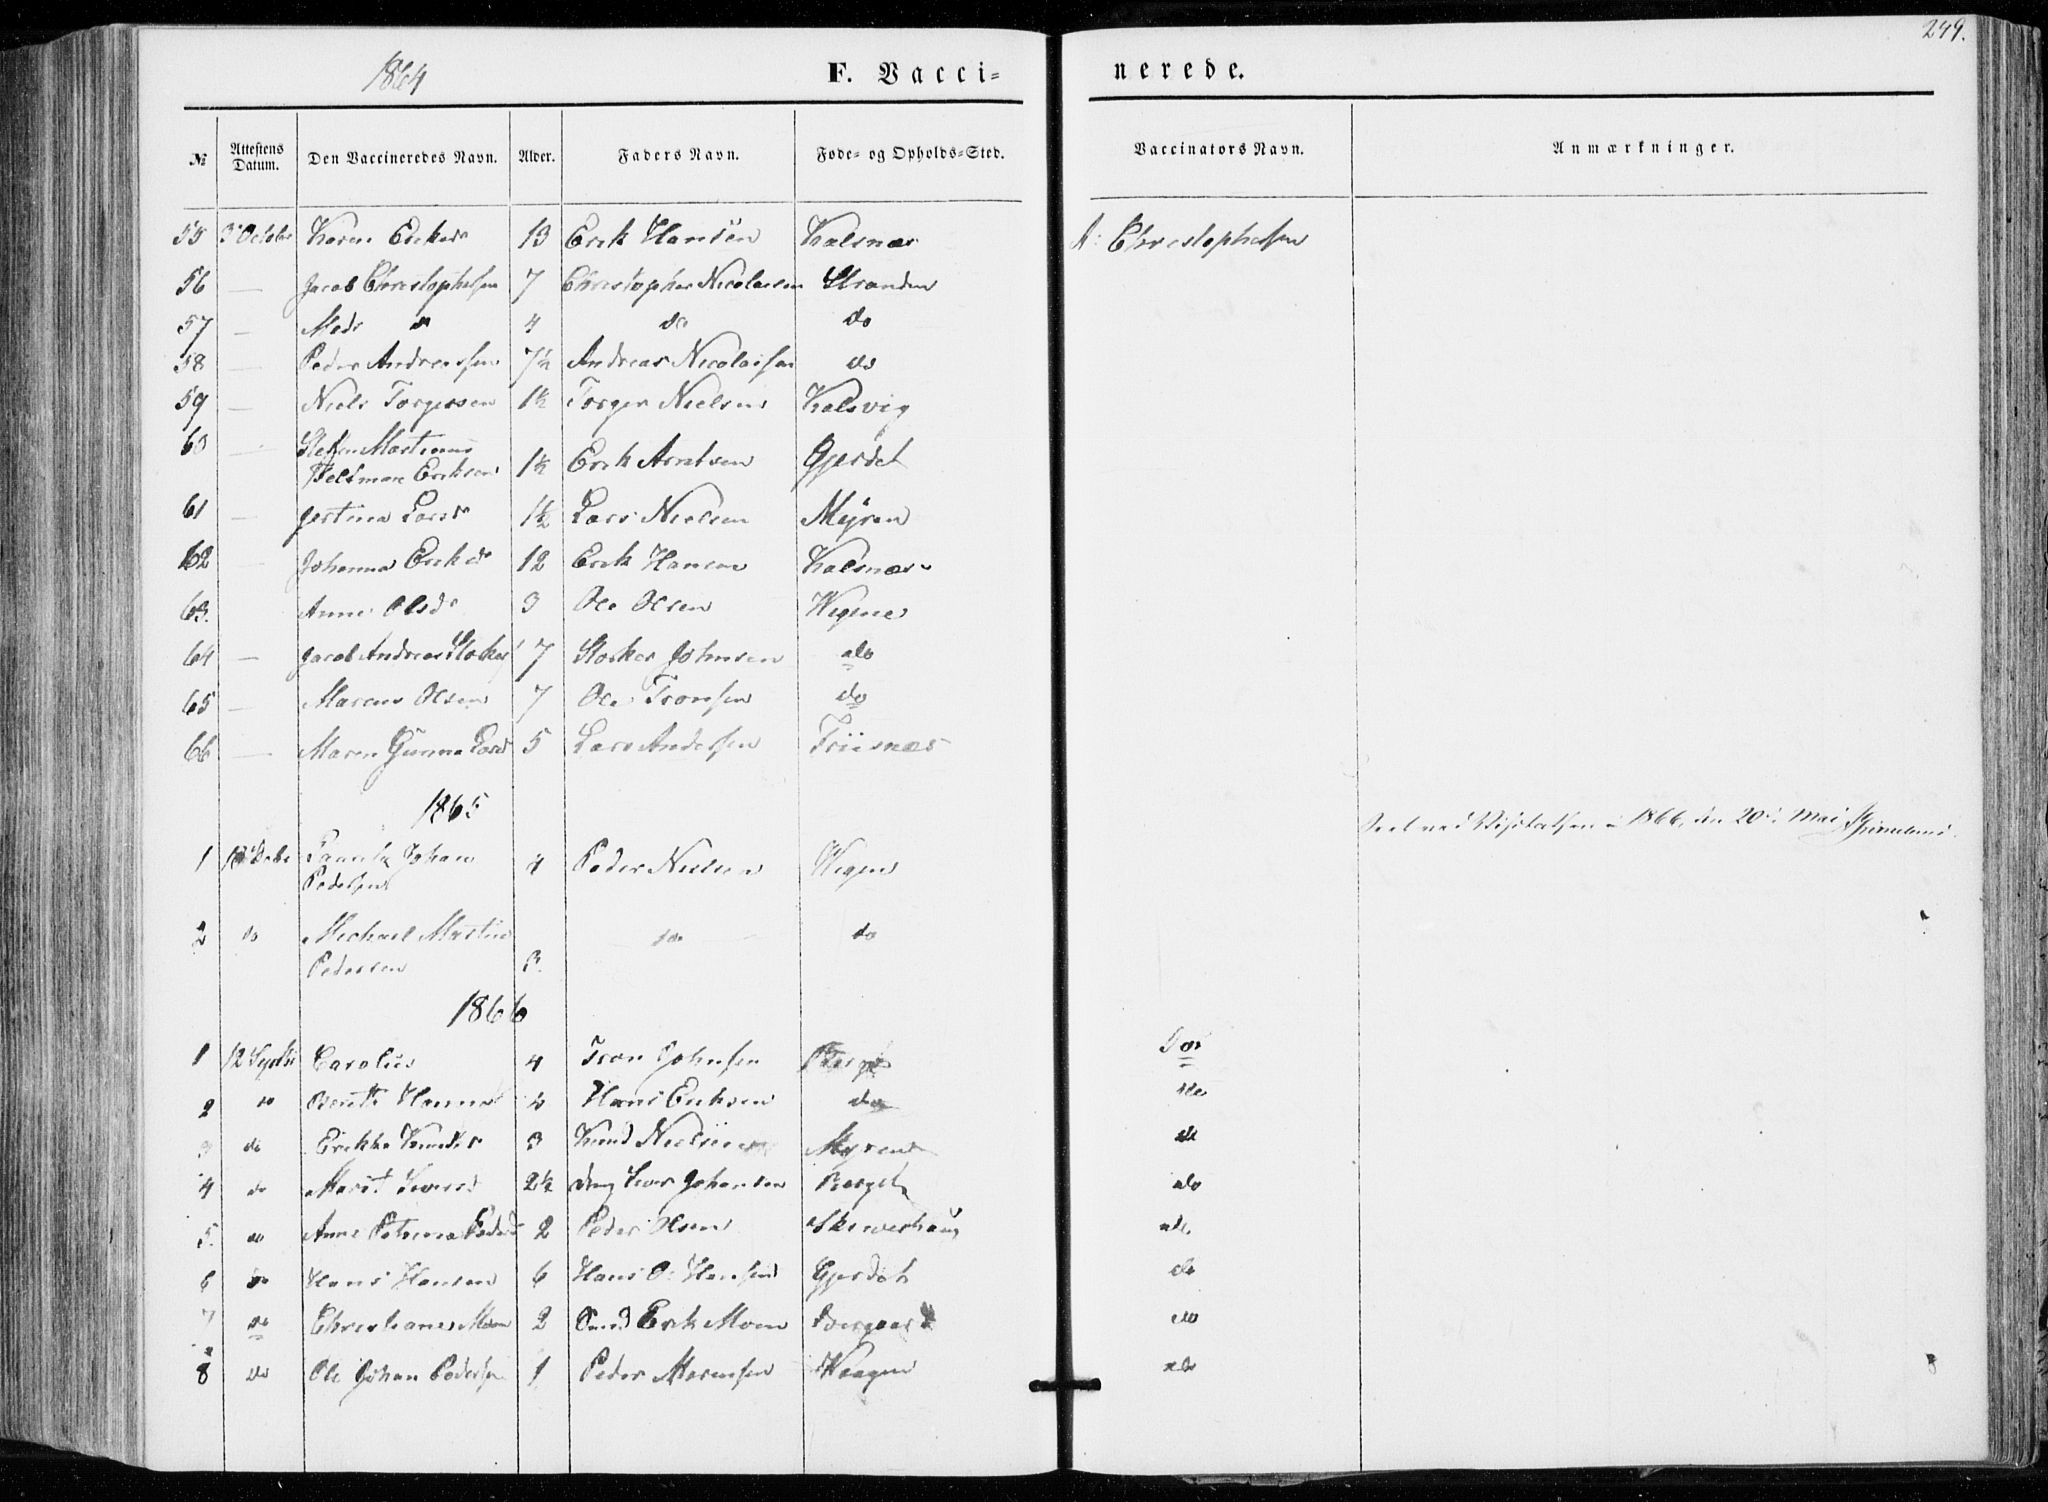 249.
1864 F. Vacci= nerede.
№ Attestens Datum. Den Vaccineredes Navn. Alder. Faders Navn. Føde= og Opholds=Sted. Vaccinators Navn. Anmærkninger.
55 3 Octbr Karen Eriksd 13 Erik Hansen Kalsnæs A: Christophersen
56 — Jacob Christophersen 7 Christopher Nicolaisen Stranden
57 — Mads do 4 do do
58 — Peder Andreassen 7½ Andreas Nicolaisen do
59 — Niels Torgersen 1½ Torger Nielsen Kalsvig
60 — Martinus
Eriksen 1½ Erik Arntsen Gjerdet
61 — Larsd 1½ Lars Nielsen Myren
62 Johanna Eriksd 12 Erik Hansen Kalsnæs
63. Anne Olsd 3 Ole Olsen
64 — Jacob Andreas 7 Johnsen do
65 — Marcus Olsen 7 Ole Tronsen do
66 — Maren Gunna Larsd 5 Lars Andersen
1865
1866, den 20de Mai
1 Johan
Pedersen 4 Peder Nielsen
2 do Michael Martin do do
Pedersen 3.
1866
1 12 Carolus 4 Tron Johnsen Berget do
2 do Berit Hanna 4 Hans Eriksen do do
3 do Erikka Knudsd 3 Knud Nielsen Myren do
4 do Marit Iversd 2½ Iver Johansen Berget do
5. do Anne Petrina Pedersd 2 Peder Olsen do
6 do Hans Hansen 6 Hans O. Hansen Gjerdet do
7 do Christiane Moen 2 Erik Moen do
8 do Ole Johan Pedersen 1 Peder Morensen do